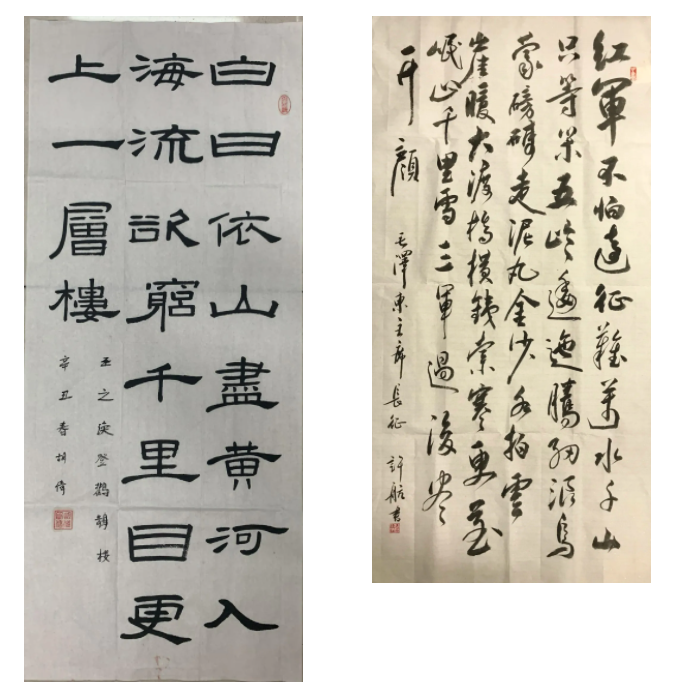 白日依山盡黄河入
海流欲窮千里目更
上一層樓
王之渙登鸛鵲樓
辛丑春胡
紅軍不怕遠征難萬水千山
只等閑五岭逶迤騰細浪烏
蒙磅礴走泥丸金沙水拍雲
崖暖大渡橋橫鐵索寒更喜
岷山千里雪三軍過後盡
开顏
毛澤東主席長征 許航書